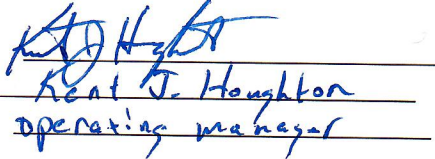 Kent J Hought
Kent J. Houghton
operating manager